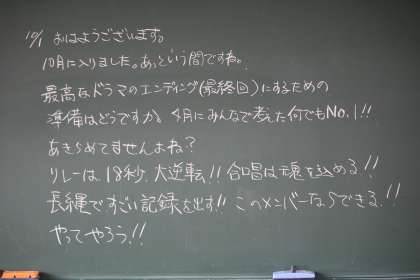 10/1 おはようございます。
10月に入りました。あっという間ですね。
最高なドラマのエンディング(最終回)にするための
準備はどうですか。4月にみんなで考えた何でもNo.1!!
あきらめてませんよね?
リレーは、18秒、大逆転!! 合唱は魂を込める!!
長縄ですごい記録を出す!! このメンバーならできる!!
やってやろう!!